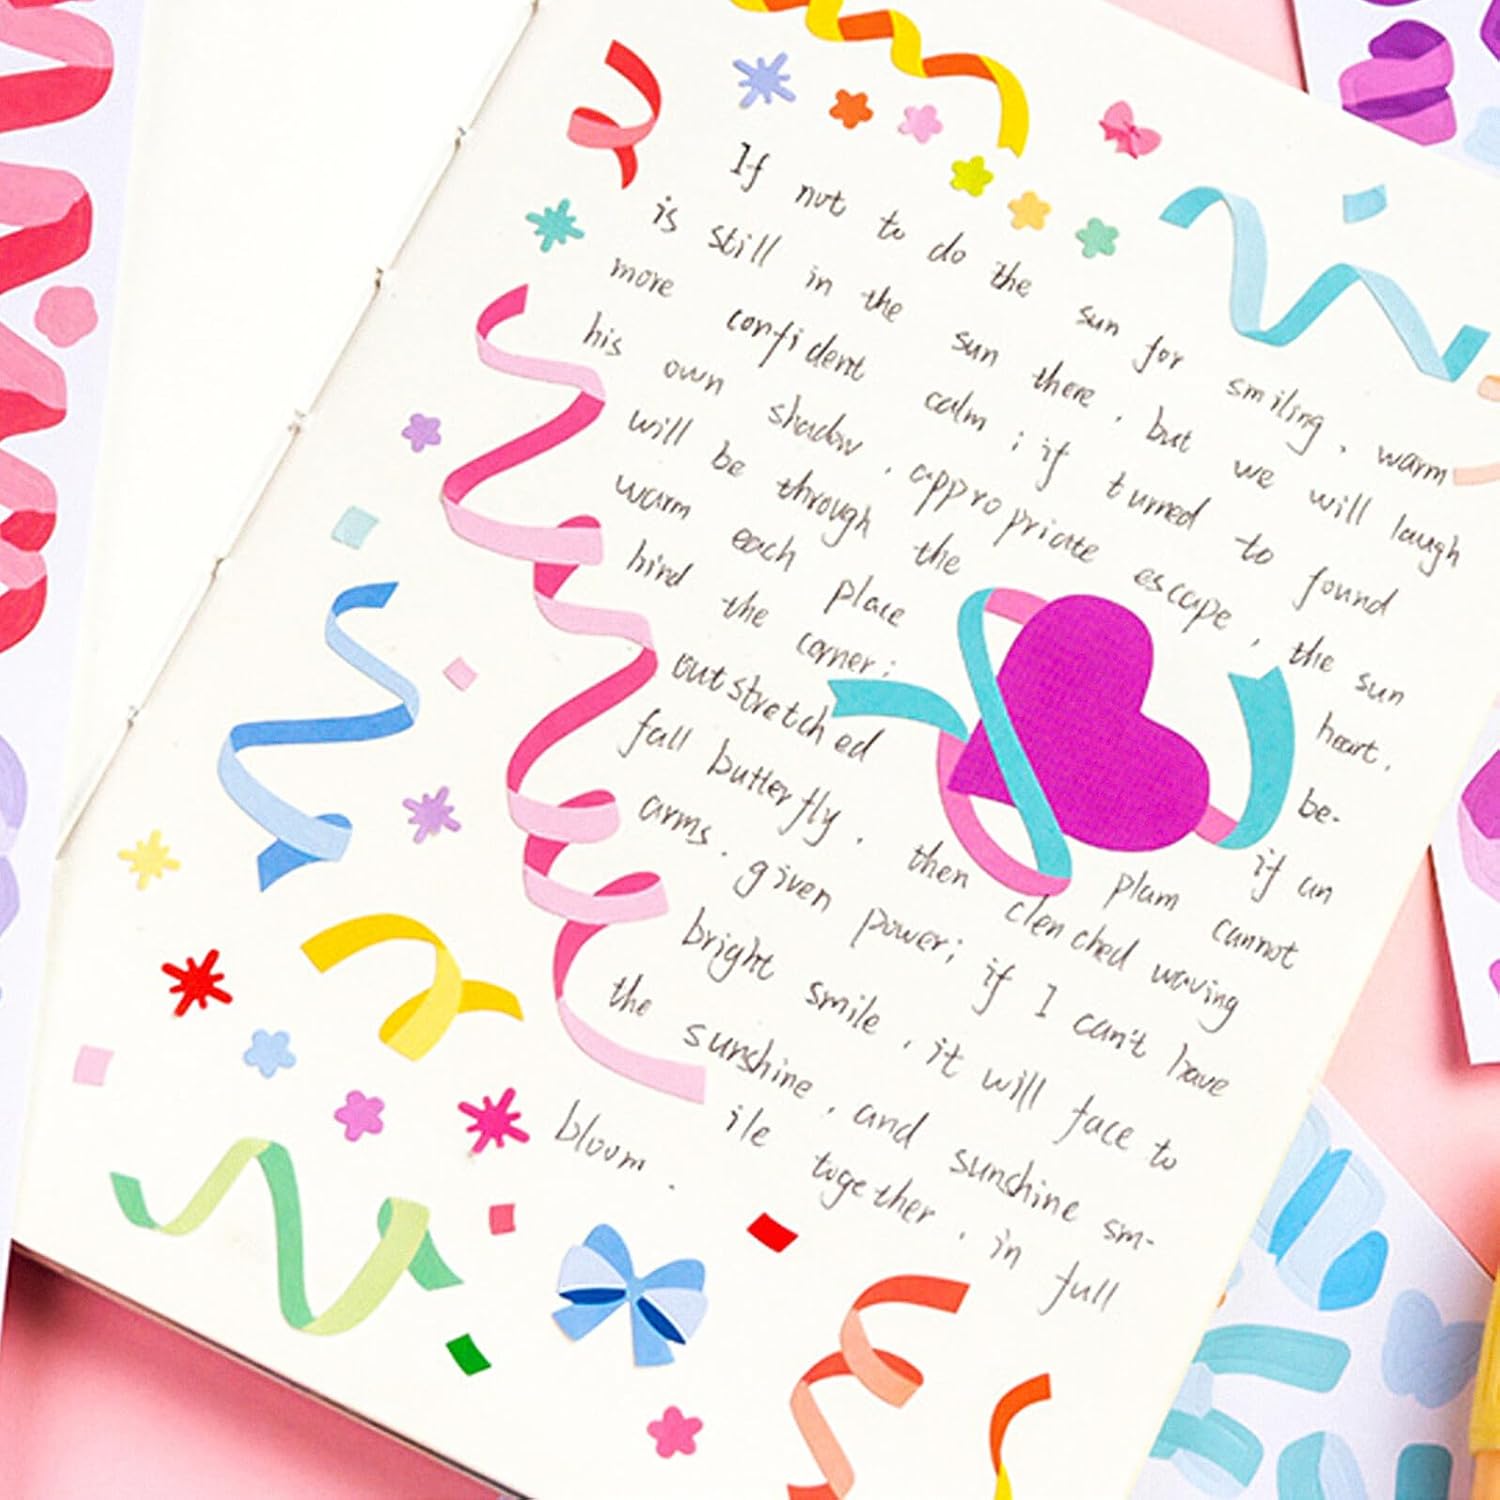 If not to do the sun for smiling, warm
is still in the sun there, but we will laugh
more confident calm; if turned to found
his own shadow, appropriate escape, the sun
will be through the heart,
warm each place be-
hind the corner; if an
outstretched plam cannot
fall butterfly, then clenched waving
arms, given power; if I can't have
bright smile, it will face to
the sunshine, and sunshine sm-
ile together, in full
bloom.